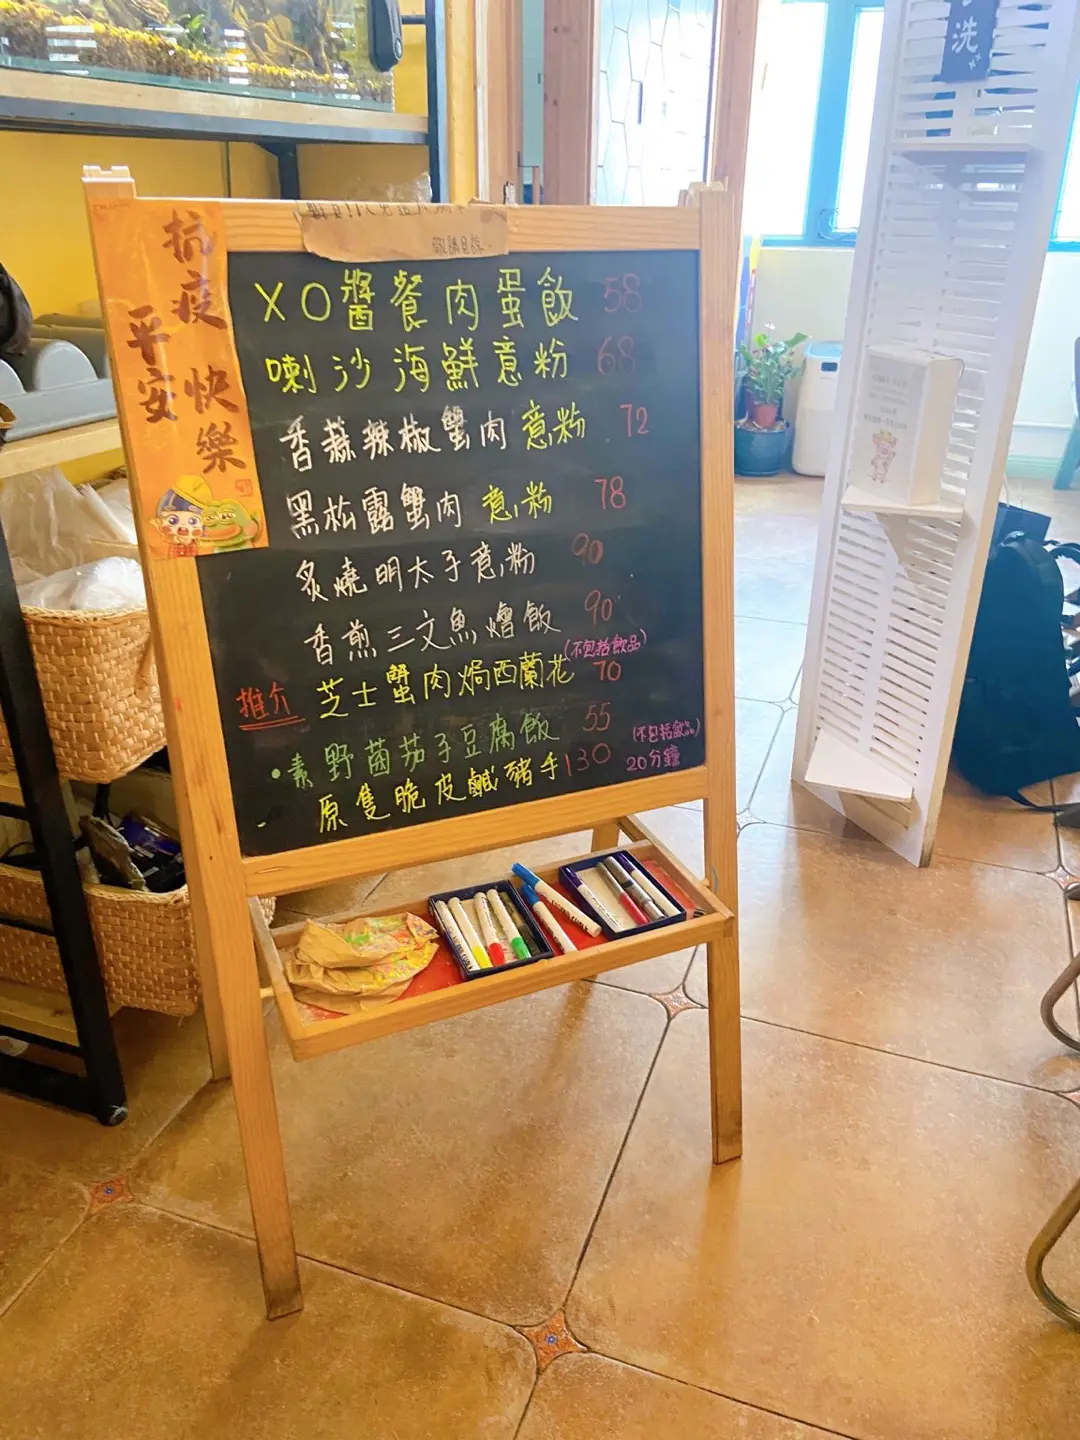 抗疫 快樂
平安
敬請見諒
XO醬餐肉蛋飯 58
喇沙海鮮意粉 68
香蒜辣椒蟹肉意粉 72
黑松露蟹肉意粉 78
炙燒明太子意粉 90
香煎三文魚燴飯 90
(不包括飲品)
推介 芝士蟹肉焗西蘭花 70
•素野菌茄子豆腐飯 55
(不包括飲品)
原隻脆皮鹹豬手 130 20分鐘
洗